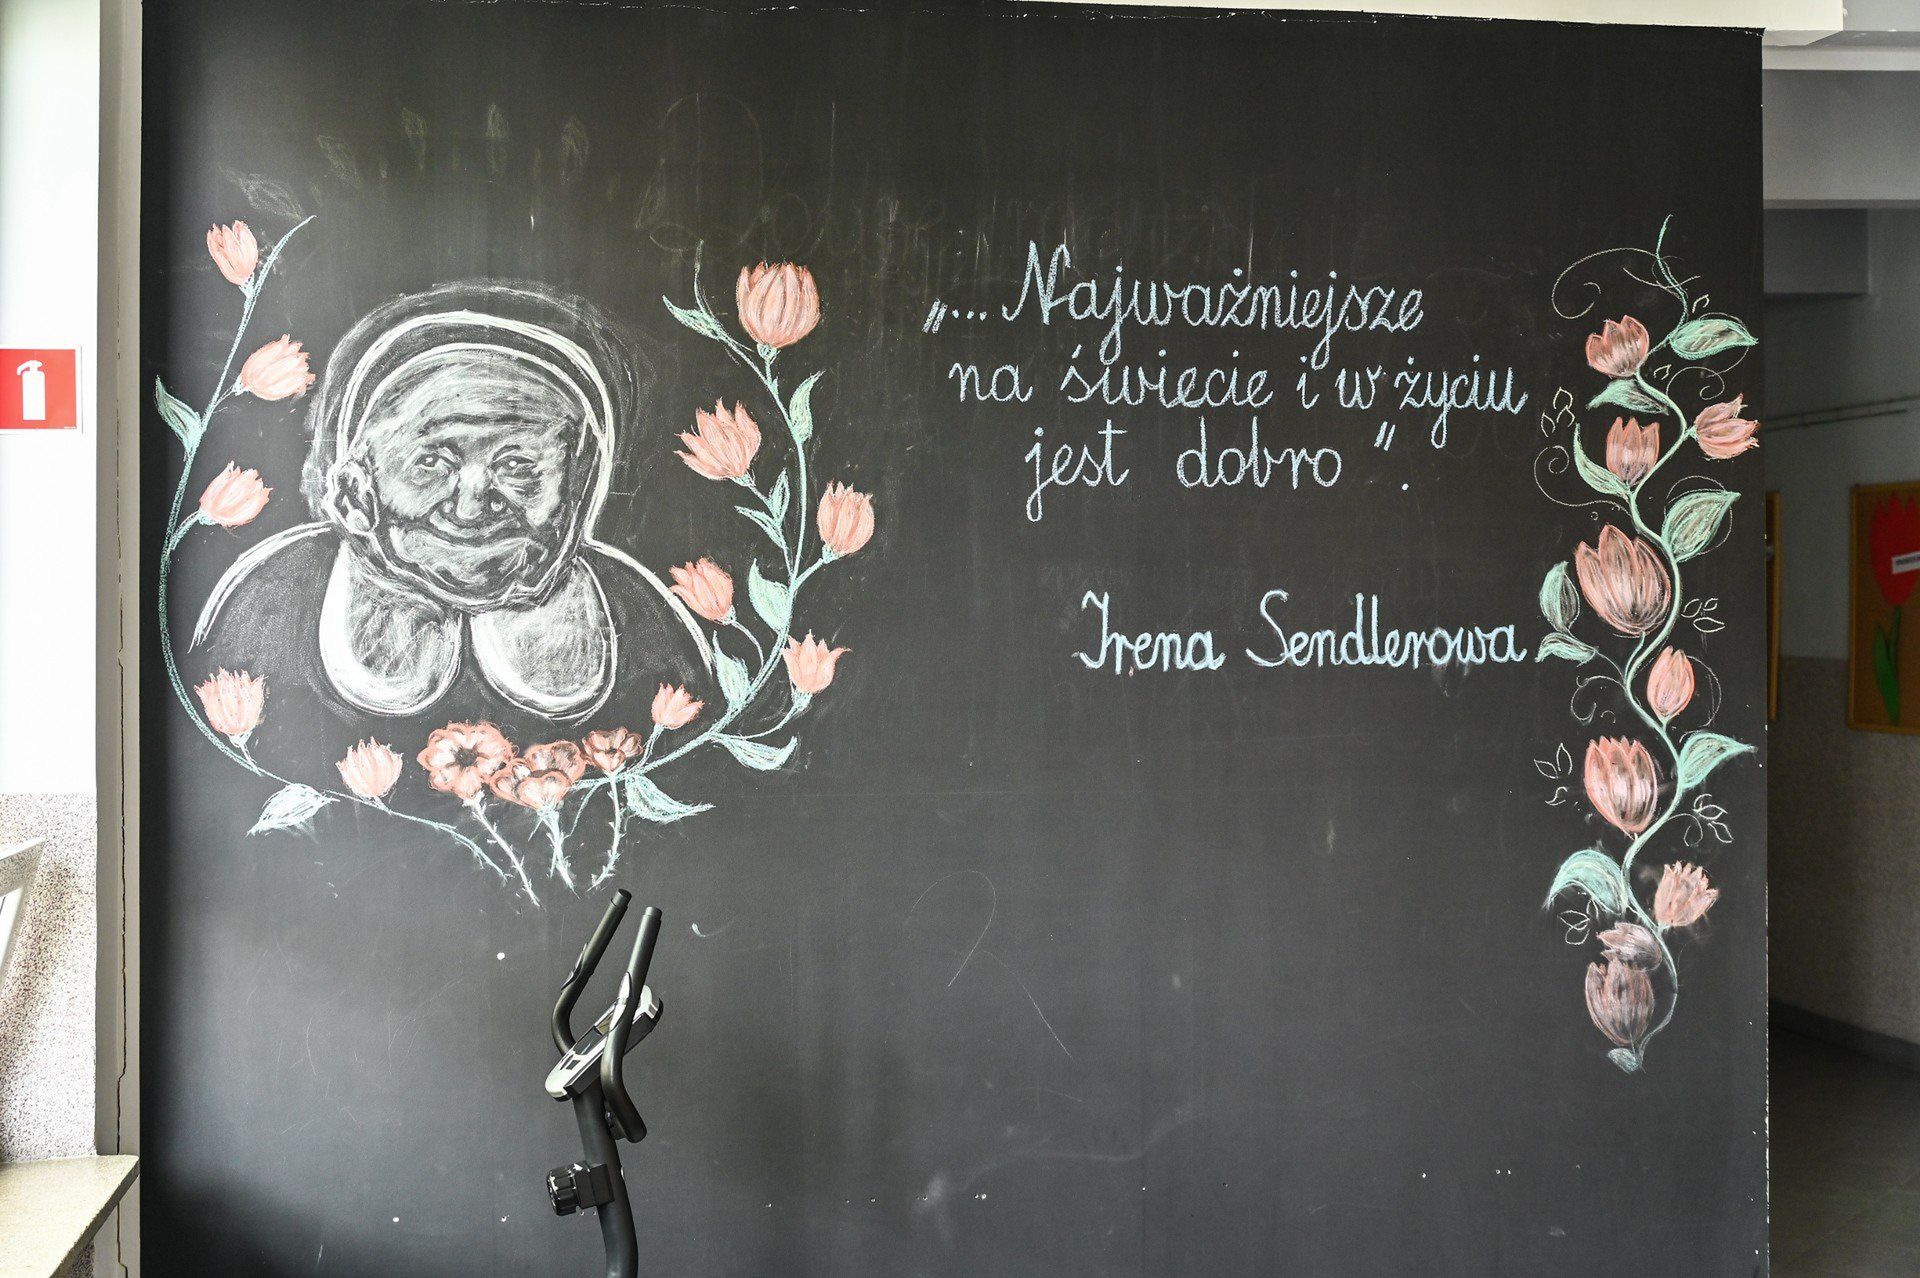 „...Najważniejsze
na świecie i w życiu
jest dobro".
Irena Sendlerowa